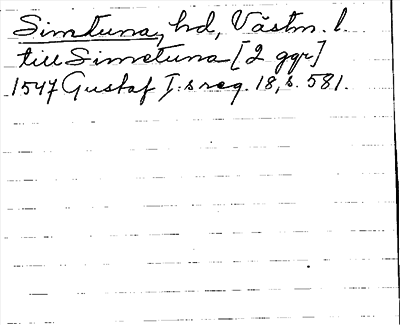 Simtuna, hd, Västm. l.
till Simetuna [2 ggr]
1547 Gustaf I:s reg. 18, s. 581.